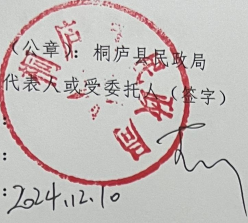 （公章）：桐庐县民政局
代表人或受委托人（签字）
：
：
：2024.12.10